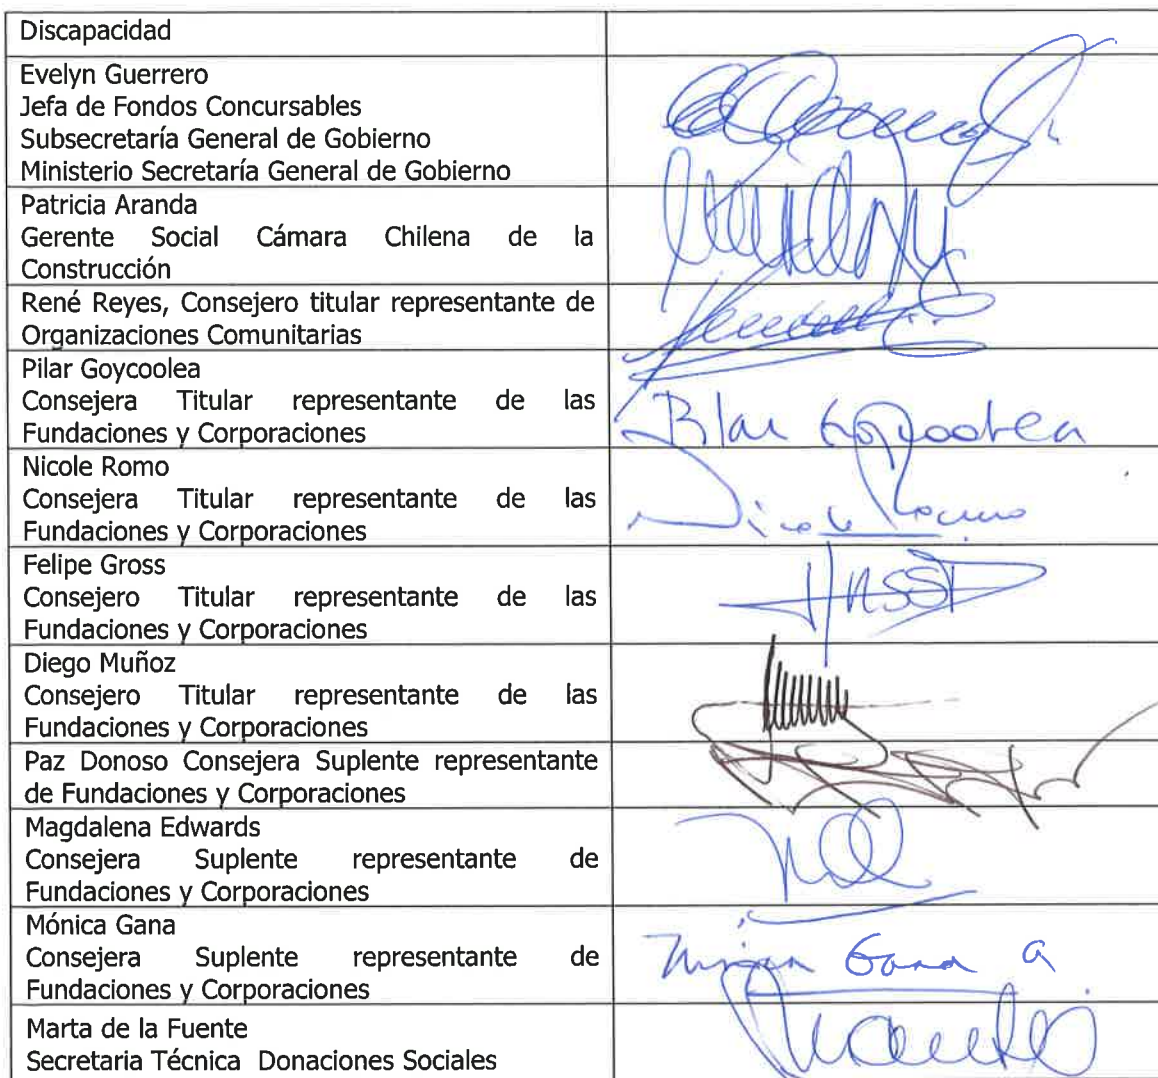 Discapacidad
Evelyn Guerrero
Jefa de Fondos Concursables
Subsecretaría General de Gobierno
Ministerio Secretaría General de Gobierno
Patricia Aranda
Gerente Social Cámara Chilena de la
Construcción
René Reyes, Consejero titular representante de
Organizaciones Comunitarias
Pilar Goycoolea
Consejera Titular representante de las
Fundaciones y Corporaciones
Pilar Goycoolea
Nicole Romo
Consejera Titular representante de las
Fundaciones y Corporaciones
Nicole Romo
Felipe Gross
Consejero Titular representante de las
Fundaciones y Corporaciones
Diego Muñoz
Consejero Titular representante de las
Fundaciones y Corporaciones
Paz Donoso Consejera Suplente representante
de Fundaciones y Corporaciones
Magdalena Edwards
Consejera Suplente representante de
Fundaciones y Corporaciones
Mónica Gana
Consejera Suplente representante de
Fundaciones y Corporaciones
Gana a
Marta de la Fuente
Secretaria Técnica Donaciones Sociales